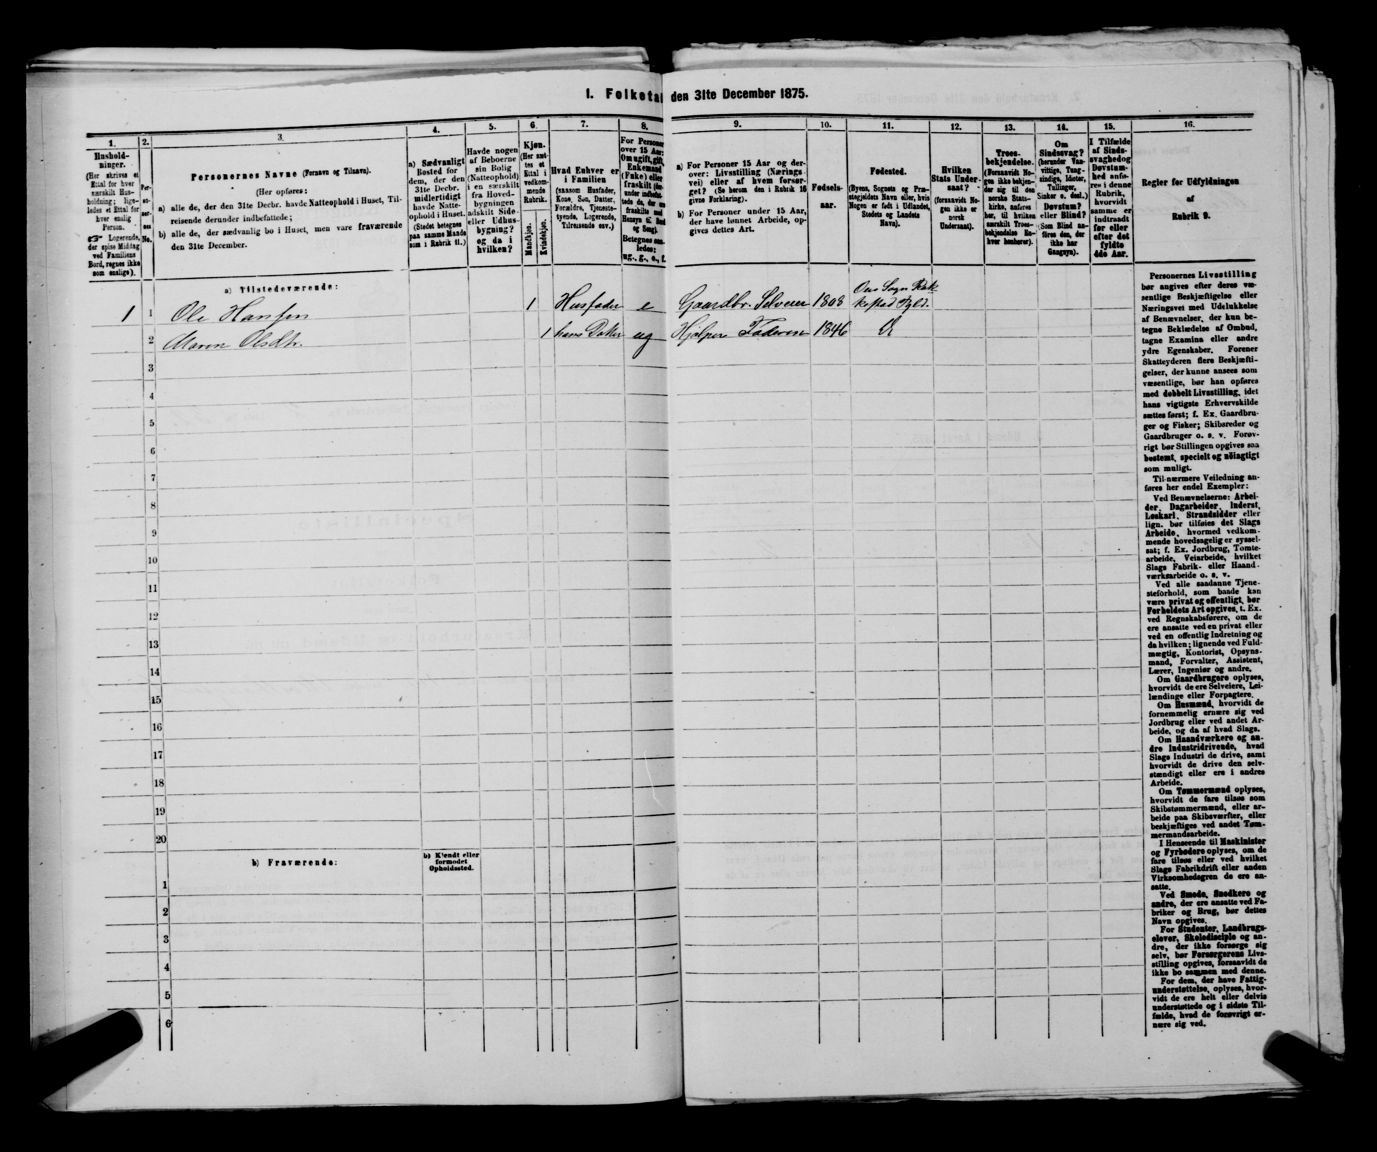 I. Folketal den 31te December 1875.
1.
2.
3.
4.
5.
6.
7.
8.
9.
10.
11.
12.
13.
14.
15.
16.
Hushold-
ninger.
(Her skrives et
Ettal for hver
særskilt Hus-
holdning; lige-
ledes et Ettal for
hver enslig
Person.
☞ Logerende,
der spise Middag
ved Familiens
Bord, regnes ikke
som enslige).
Per-
so-
ner-
nes
No.
Personernes Navne (Fornavn og Tilnavn).
(Her opføres:
a) alle de, der den 31te Decbr. havde Natteophold i Huset, Til-
reisende derunder indbefattede;
b) alle de, der sædvanlig bo i Huset, men vare fraværende
den 31te December.
a) Sædvanligt
Bosted for
dem, der den
31te Decbr.
midlertidigt
havde Natte-
ophold i Huset.
(Stedet betegnes
paa samme Maade
som i Rubrik 11.)
Havde nogen
af Beboerne
sin Bolig
(Natteophold)
i en særskilt
fra Hoved-
bygningen
adskilt Side-
eller Udhus-
bygning?
og da i
hvilken?
Kjøn.
(Her sæt-
tes et
Ettal i
vedkom-
mende
Rubrik.
Mandkjøn.
Kvindekjøn.
Hvad Enhver er
i Familien
(saasom Husfader,
Kone, Søn, Datter,
Forældre, Tjeneste-
tyende, Logerende,
Tilreisende osv.)
For Personer
over 15 Aar:
Om ugift, gift,
Enkemand
(Enke) eller
fraskilt
Betegnes saa-
ledes:
ug., g., e., f.
a) For Personer 15 Aar og der-
over: Livsstilling (Nærings-
vei) eller af hvem forsør-
get? (Se herom den i Rubrik 16
givne Forklaring).
b) For Personer under 15 Aar,
der have lønnet Arbeide, op-
gives dettes Art.
Fødsels-
aar.
Fødested.
(Byens, Sognets og Præ-
stegjeldets Navn eller, hvis
Nogen er født i Udlandet,
Stedets og Landets
Navn).
Hvilken
Stats Under-
saat?
(forsaavidt No-
gen ikke er
norsk
Undersaat).
Troes-
bekjendelse.
(Forsaavidt No-
gen ikke bekjen-
der sig til den
norske Stats-
kirke, anføres
her, til hvilken
særskilt Troes-
bekjendelse En-
hver henhører).
Om
Sindssvag?
(herunder Van-
vittige, Tung-
sindige, Idioter,
Tullinger,
Sinker o. desl.)
Døvstum?
eller Blind?
(Som Blind an-
føres den, der
ikke har
Gangsyn).
I Tilfælde
af Sinds-
svaghed og
Døvstum-
hed anfø-
res i denne
Rubrik,
hvorvidt
samme er
indtraadt
før eller
efter det
fyldte
4de Aar.
Regler for Udfyldningen
af
Rubrik 9.
a) Tilstedeværende:
1 1 Ole Hansen 1 Husfader e Gaardbr. Selveier 1803
2 Maren Olsdtr. 1 hans Datter ug Hjælper Faderen 1846
3
4
5
6
7
8
9
10
11
12
13
14
15
16
17
18
19
20
b) Fraværende:
b) Kjendt eller
formodet
Opholdssted.
1
2
3
4
5
6
Personernes Livsstilling
bør angives efter deres væ-
sentlige Beskjæftigelse eller
Næringsvei med Udelukkelse
af Benævnelser, der kun be-
tegne Beklædelse af Ombud,
tagne Examina eller andre
ydre Egenskaber. Forener
Skatteyderen flere Beskjæfti-
gelser, der kunne ansees som
væsentlige, bør han opføres
med dobbelt Livsstilling, idet
hans vigtigste Erhvervskilde
sættes først; f. Ex. Gaardbru-
ger og Fisker; Skibsreder og
Gaardbruger o. s. v. Forøv-
rigt bør Stillingen opgives saa
bestemt, specielt og nøiagtigt
som muligt.
Til nærmere Veiledning an-
føres her endel Exempler:
Ved Benævnelserne: Arbei-
der, Dagarbeider, Inderst,
Løskarl, Strandsidder eller
lign. bør tilføies det Slags
Arbeide, hvormed vedkom-
mende hovedsagelig er syssel-
sat; f. Ex. Jordbrug, Tomte-
arbeide, Veiarbeide, hvilket
Slags Fabrik- eller Haand-
værksarbeide o. s. v.
Ved alle saadanne Tjene-
steforhold, som baade kan
være privat og offentligt, bør
Forholdets Art opgives, t. Ex.
ved Regnskabsførere, om de
ere ansatte ved en privat eller
ved en offentlig Indretning og
da hvilken; lignende ved Fuld-
mægtig, Kontorist, Opsyns-
mand, Forvalter, Assistent,
Lærer, Ingeniør og andre.
Om Gaardbrugere oplyses,
hvorvidt de ere Selveiere, Lei-
lændinge eller Forpagtere.
Om Husmænd, hvorvidt de
fornemmelig ernære sig ved
Jordbrug eller ved andet Ar-
beide, og da af hvad Slags.
Om Haandværkere og an-
dre Industridrivende, hvad
Slags Industri de drive, samt
hvorvidt de drive den selv-
stændigt eller ere i andres
Arbeide.
Om Tømmermænd oplyses,
hvorvidt de fare tilsøs som
Skibstømmermænd, eller ar-
beide paa Skibsværfter, eller
beskjæftiges ved andet Tøm-
mermandsarbeide.
I Henseende til Maskinister
og Fyrbødere oplyses, om de
fare tilsøs eller ved hvilket
Slags Fabrikdrift eller anden
Virksomhedsgren de ere an-
satte.
Ved Smede, Snedkere og
andre, der ere ansatte ved Fa-
briker og Brug, bør dettes
Navn opgives.
For Studenter, Landbrugs-
elever, Skoledisciple og an-
dre, der ikke forsørge sig
selv, bør Forsørgerens Livs-
stilling opgives, forsaavidt de
ikke bo sammen med denne.
For dem, der have Fattig-
understøttelse, oplyses, hvor-
vidt de ere helt eller delvis
understøttede og i sidste Til-
fælde, hvad de forøvrigt er-
nære sig ved.